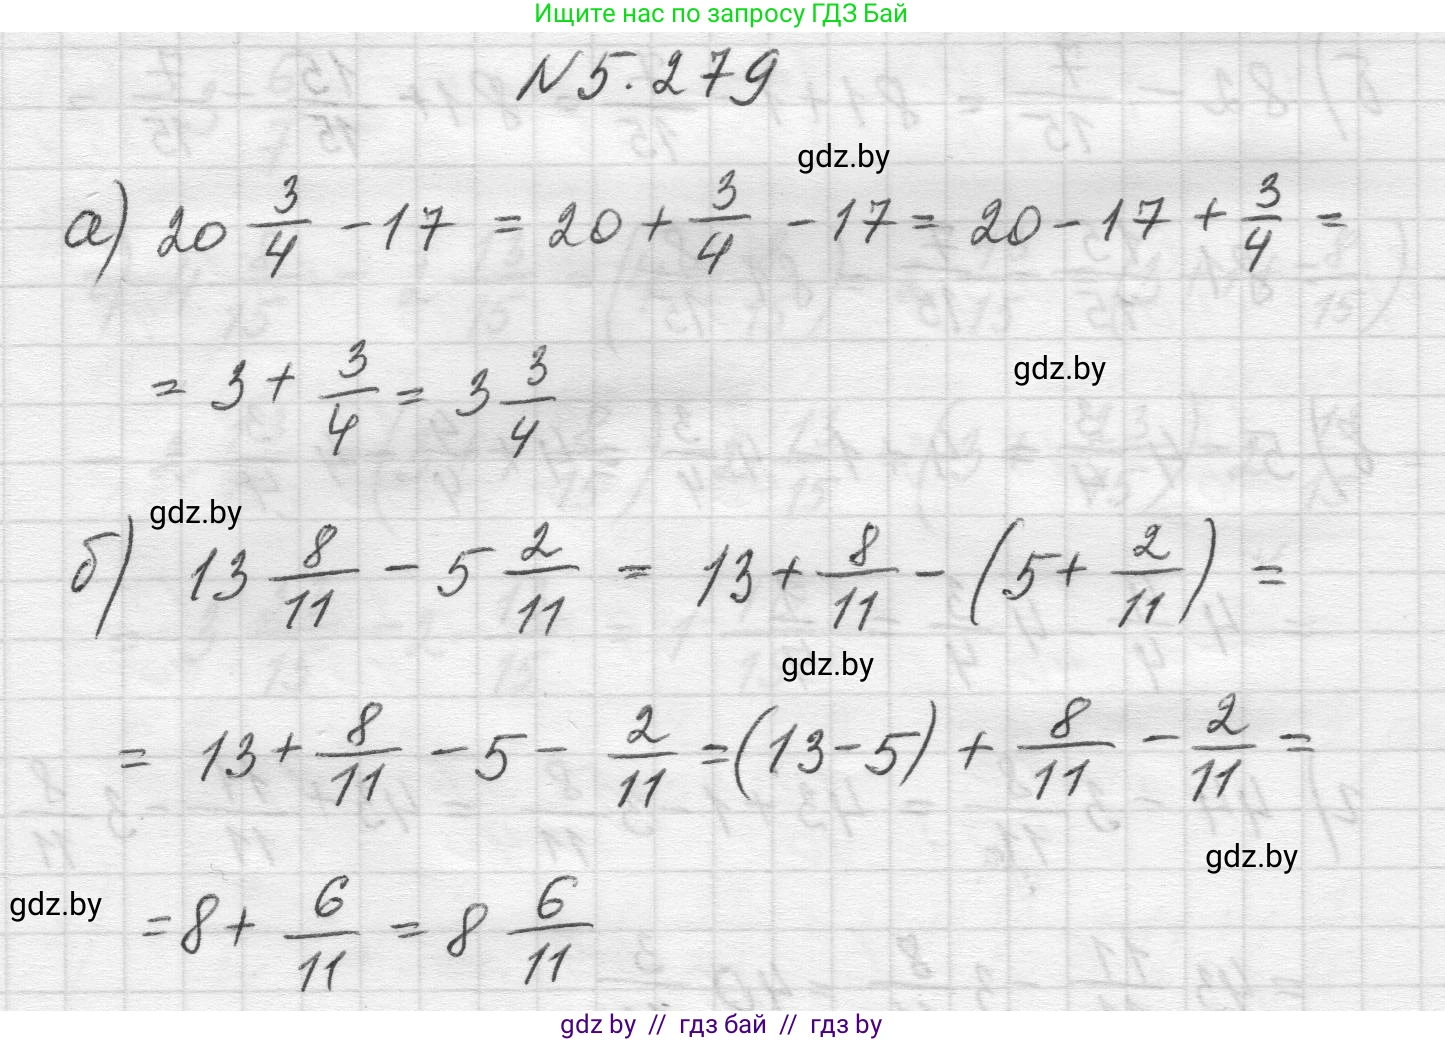 Ищите нас по запросу ГДЗ Бай
N5.279
gdz.by
а) 20 3/4 - 17 = 20 + 3/4 - 17 = 20 - 17 + 3/4 =
= 3 + 3/4 = 3 3/4
gdz.by
gdz.by
б) 13 8/11 - 5 2/11 = 13 + 8/11 - (5 + 2/11) =
gdz.by
= 13 + 8/11 - 5 - 2/11 = (13 - 5) + 8/11 - 2/11 =
gdz.by
gdz.by
= 8 + 6/11 = 8 6/11
gdz by // гдз бай // гдз by